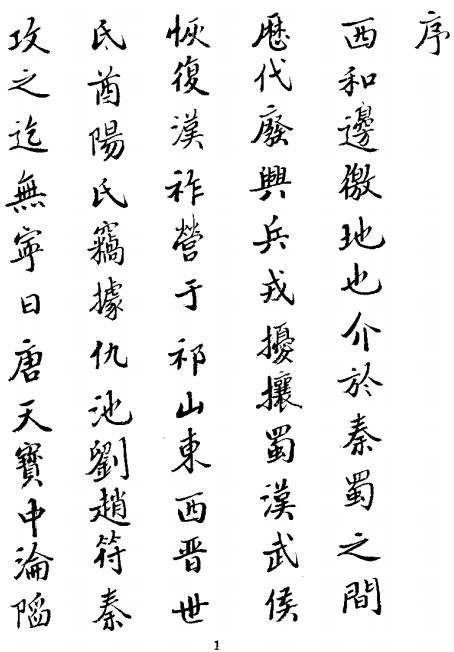 序
西和邊徼地也介於秦蜀之間
歷代廢興兵戎擾攘蜀漢武侯
恢復漢祚營于祁山東西晋世
氐酋陽氏竊據仇池劉趙符秦
攻之迄無寧日唐天寶中淪陷
1